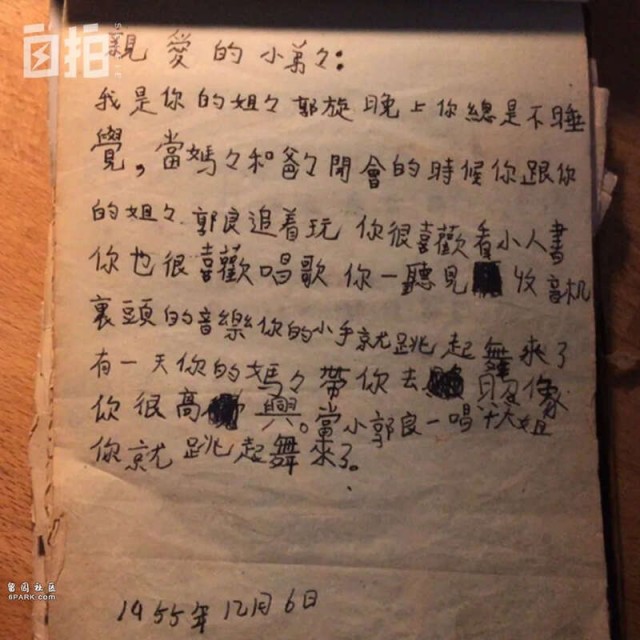 自拍
親愛的小弟々：
我是你的姐々郭旋晚上你總是不睡
覺，當媽々和爸々開會的時候你跟你
的姐々郭良追着玩 你很喜歡看小人書
你也很喜歡唱歌 你一聽見 收音机
裏頭的音樂你的小手就跳起舞來了
有一天你的媽々帶你去 照像
你很高 興。當小郭良一唱 姐
你就跳起舞來了。
1955年12月6日
留园社区
6PARK.COM